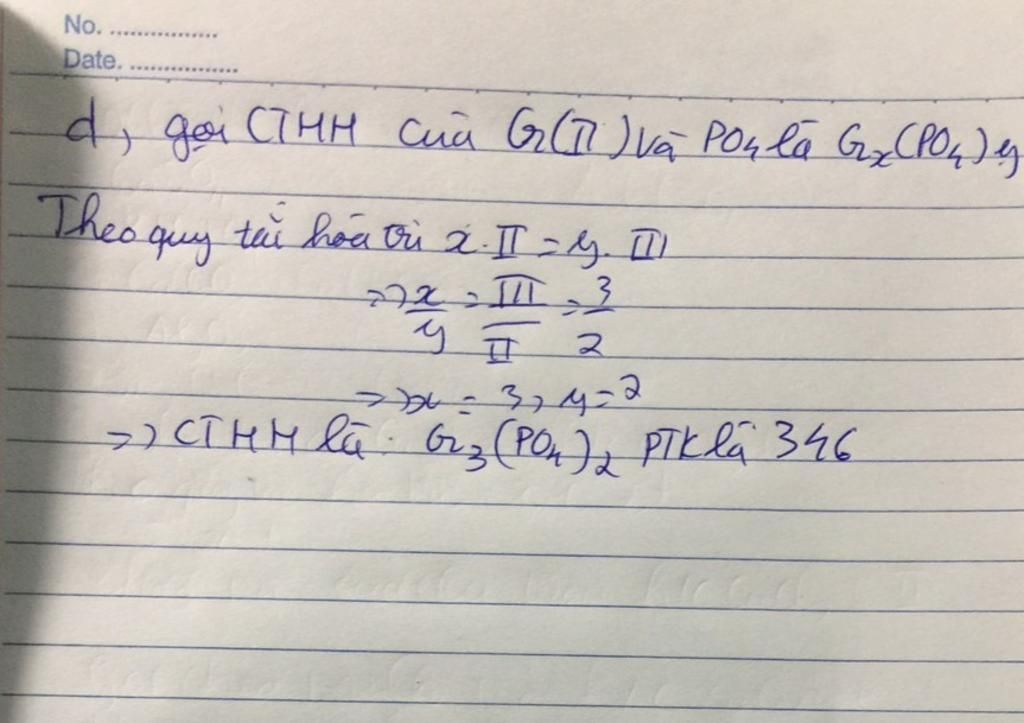 No. ................
Date. ................
d, gọi CTHH của Cr(II) và PO₄ là Crₓ(PO₄)y
Theo quy tắc hóa trị x.II = y.III
=> x/y = III/II = 3/2
=> x = 3, y = 2
=> CTHH là: Cr₃(PO₄)₂ PTK là 346